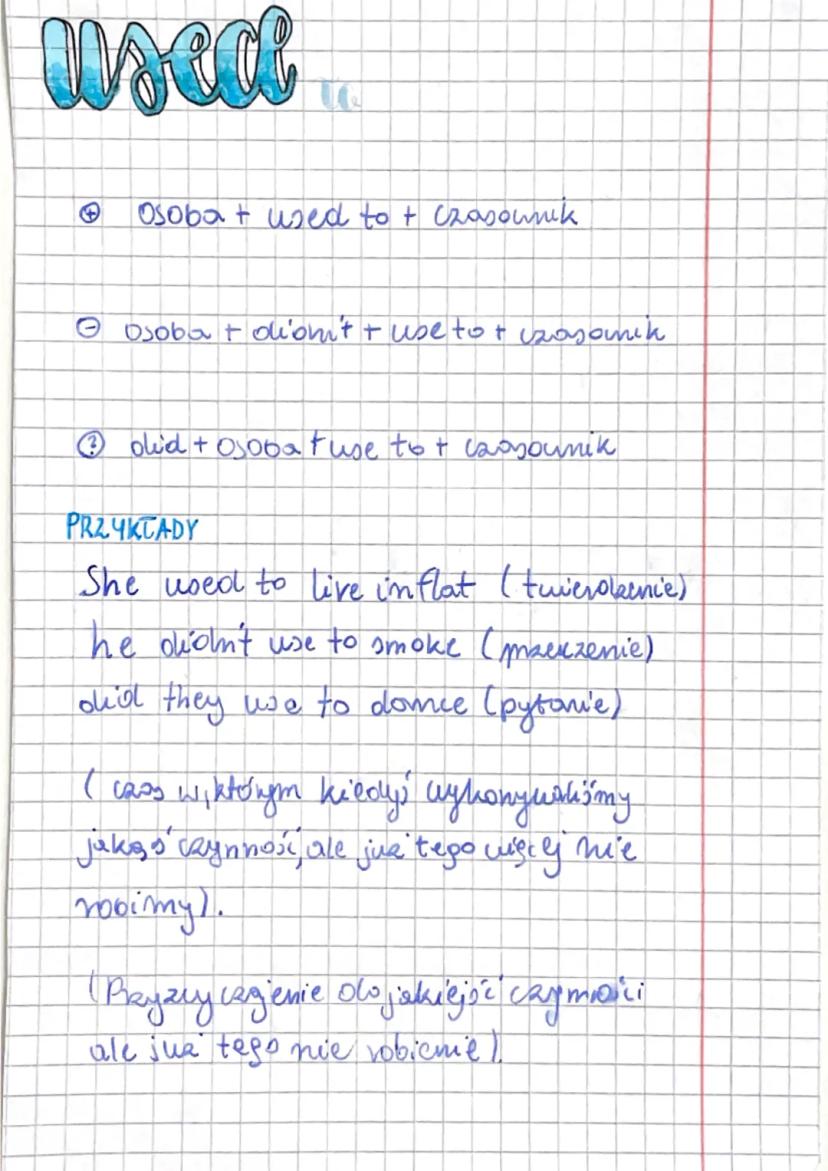 used to
⊕ osoba + used to + czasownik
⊖ osoba + didn't + use to + czasownik
? did + osoba + use to + czasownik
PRZYKŁADY
She used to live in flat (twierdzenie)
he didn't use to smoke (przeczenie)
did they use to dance (pytanie)
(czas w, którym kiedyś wykonywaliśmy
jakąś czynność, ale już tego więcej nie
robimy).
(Przyzwyczajenie do jakiejść czynności
ale już tego nie robienie).